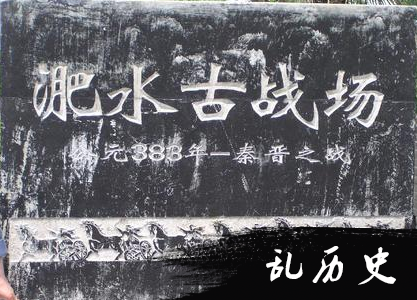 淝水古战场
公元383年—秦晋之战
乱历史